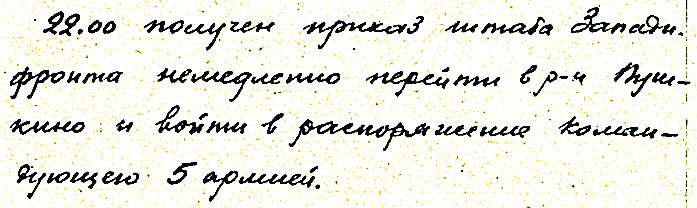 22.00 получен приказ штаба Западн.
фронта немедленно перейти в р-н Пуш-
кино и войти в распоряжение коман-
дующего 5 армией.